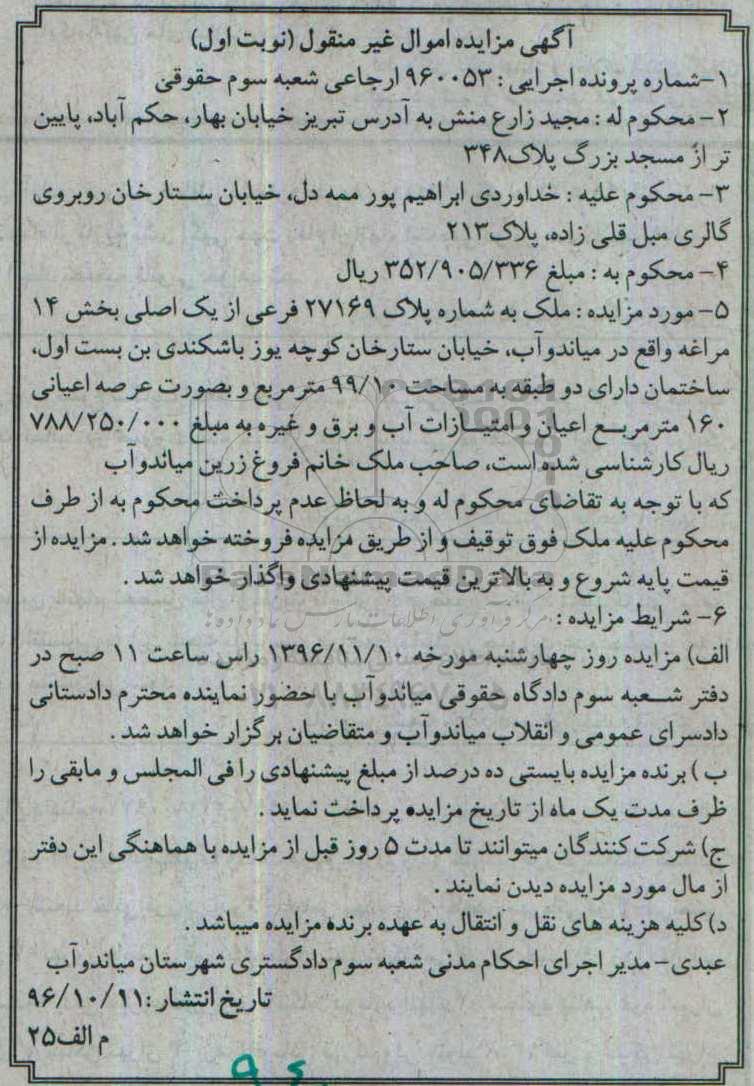 آگهی مزایده اموال غیر منقول (نوبت اول)
۱-شماره پرونده اجرایی : ۹۶۰۰۵۳ ارجاعی شعبه سوم حقوقی
۲- محکوم له : مجید زارع منش به آدرس تبریز خیابان بهار، حکم آباد، پایین
تر از مسجد بزرگ پلاک۳۴۸
۳- محکوم علیه : خداوردی ابراهیم پور ممه دل، خیابان ستارخان روبروی
گالری مبل قلی زاده، پلاک۲۱۳
۴- محکوم به : مبلغ ۳۵۲/۹۰۵/۳۳۶ ریال
۵- مورد مزایده : ملک به شماره پلاک ۲۷۱۶۹ فرعی از یک اصلی بخش ۱۴
مراغه واقع در میاندوآب، خیابان ستارخان کوچه یوز باشکندی بن بست اول،
ساختمان دارای دو طبقه به مساحت ۹۹/۱۰ مترمربع و بصورت عرصه اعیانی
۱۶۰ مترمربع اعیان و امتیازات آب و برق و غیره به مبلغ ۷۸۸/۲۵۰/۰۰۰
ریال کارشناسی شده است، صاحب ملک خانم فروغ زرین میاندوآب
که با توجه به تقاضای محکوم له و به لحاظ عدم پرداخت محکوم به از طرف
محکوم علیه ملک فوق توقیف و از طریق مزایده فروخته خواهد شد . مزایده از
قیمت پایه شروع و به بالاترین قیمت پیشنهادی واگذار خواهد شد .
۶- شرایط مزایده :
الف) مزایده روز چهارشنبه مورخه ۱۳۹۶/۱۱/۱۰ راس ساعت ۱۱ صبح در
دفتر شعبه سوم دادگاه حقوقی میاندوآب با حضور نماینده محترم دادستانی
دادسرای عمومی و انقلاب میاندوآب و متقاضیان برگزار خواهد شد .
ب ) برنده مزایده بایستی ده درصد از مبلغ پیشنهادی را فی المجلس و مابقی را
ظرف مدت یک ماه از تاریخ مزایده پرداخت نماید .
ج) شرکت کنندگان میتوانند تا مدت ۵ روز قبل از مزایده با هماهنگی این دفتر
از مال مورد مزایده دیدن نمایند .
د) کلیه هزینه های نقل و انتقال به عهده برنده مزایده میباشد .
عبدی- مدیر اجرای احکام مدنی شعبه سوم دادگستری شهرستان میاندوآب
تاریخ انتشار :۹۶/۱۰/۱۱
م الف۲۵